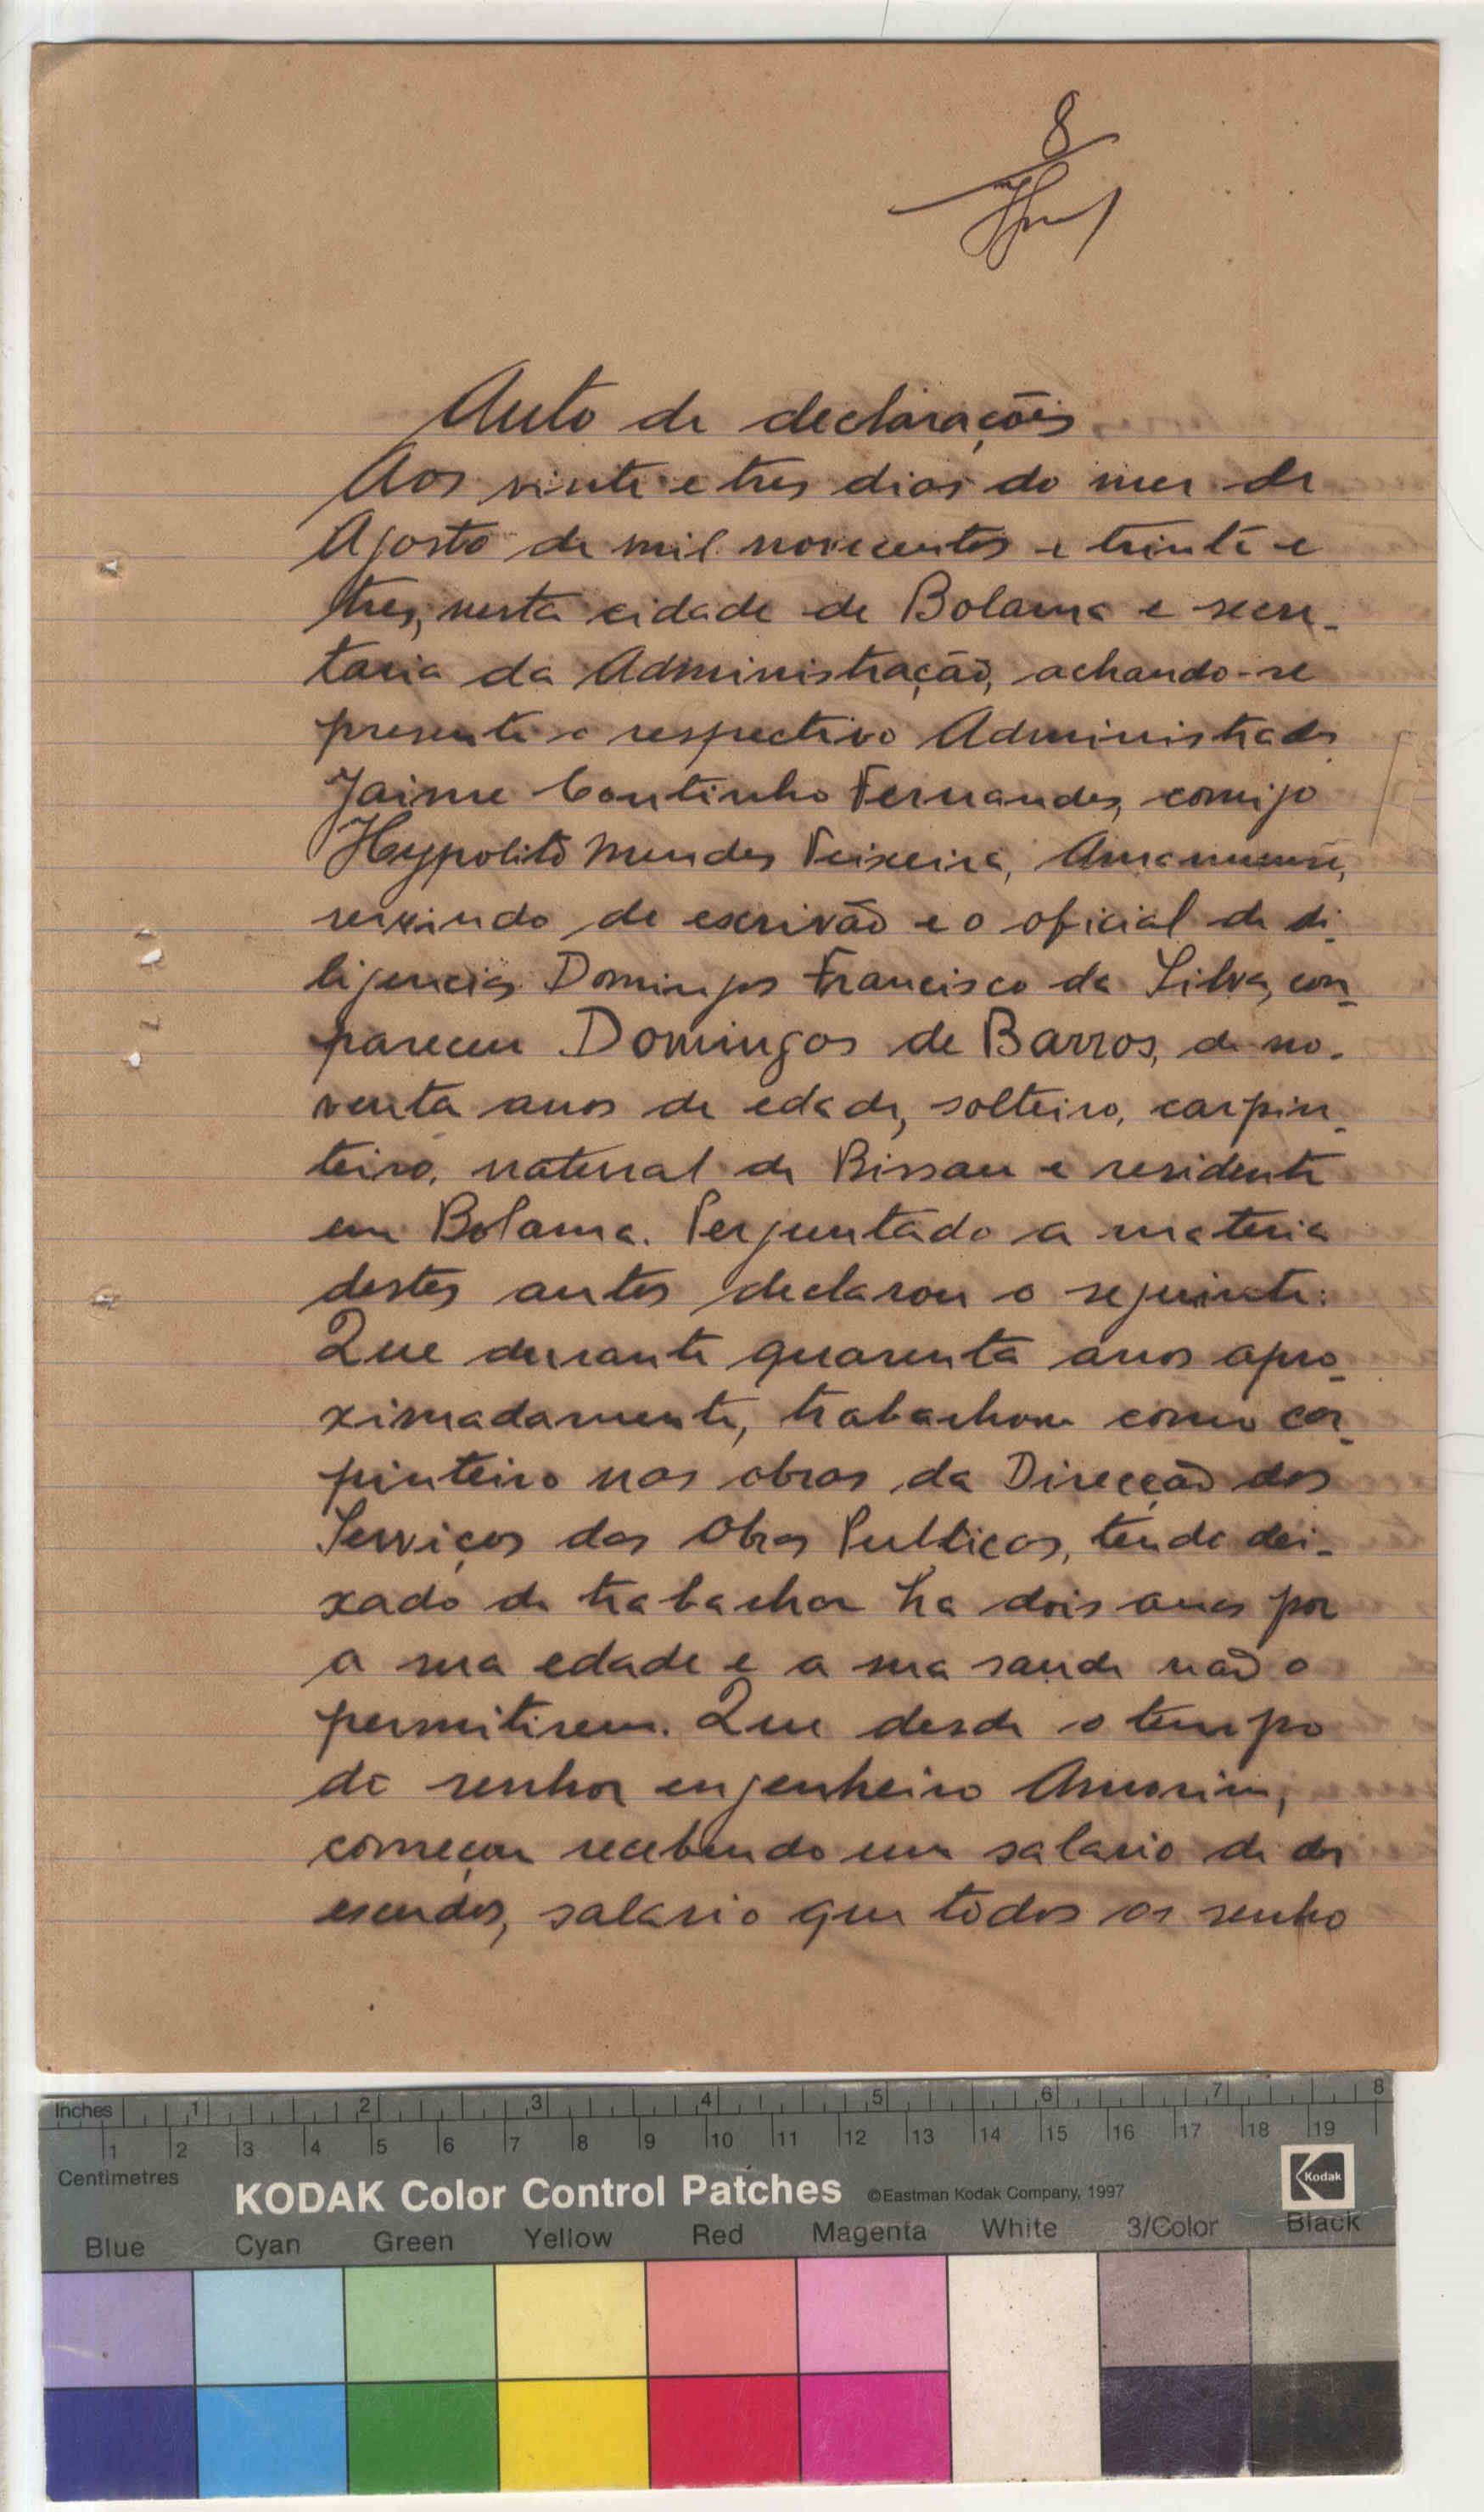 8
Auto de declarações
Aos vinte e tres dias do mez de
Agosto de mil novecentos e trinta e
tres, nesta cidade de Bolama e secre-
taria da Administração, achando-se
presente o respectivo Administrador
Jaime Coutinho Fernandes, comigo
Hypolito Mendes Teixeira, Amanuense,
servindo de escrivão e o oficial de di-
ligencias Domingos Francisco da Silva, com-
pareceu Domingos de Barros, de no-
venta anos de edade, solteiro, carpin-
teiro, natural de Bissau e residente
em Bolama. Perguntado a materia
destes autos declarou o seguinte:
Que durante quarenta anos apro-
ximadamente, trabachou como car-
pinteiro nas obras da Direcção dos
Serviços das Obras Publicas, tendo dei-
xado de trabachar ha dois anos por
a sua edade e a sua saude não o
permitirem. Que desde o tempo
do senhor engenheiro Amorim,
começou recebendo um salario de dez
escudos, salario que todos os senho
Inches 1 2 3 4 5 6 7 8
1 2 3 4 5 6 7 8 9 10 11 12 13 14 15 16 17 18 19
Centimetres
KODAK Color Control Patches ©Eastman Kodak Company, 1997 Kodak
Blue Cyan Green Yellow Red Magenta White 3/Color Black